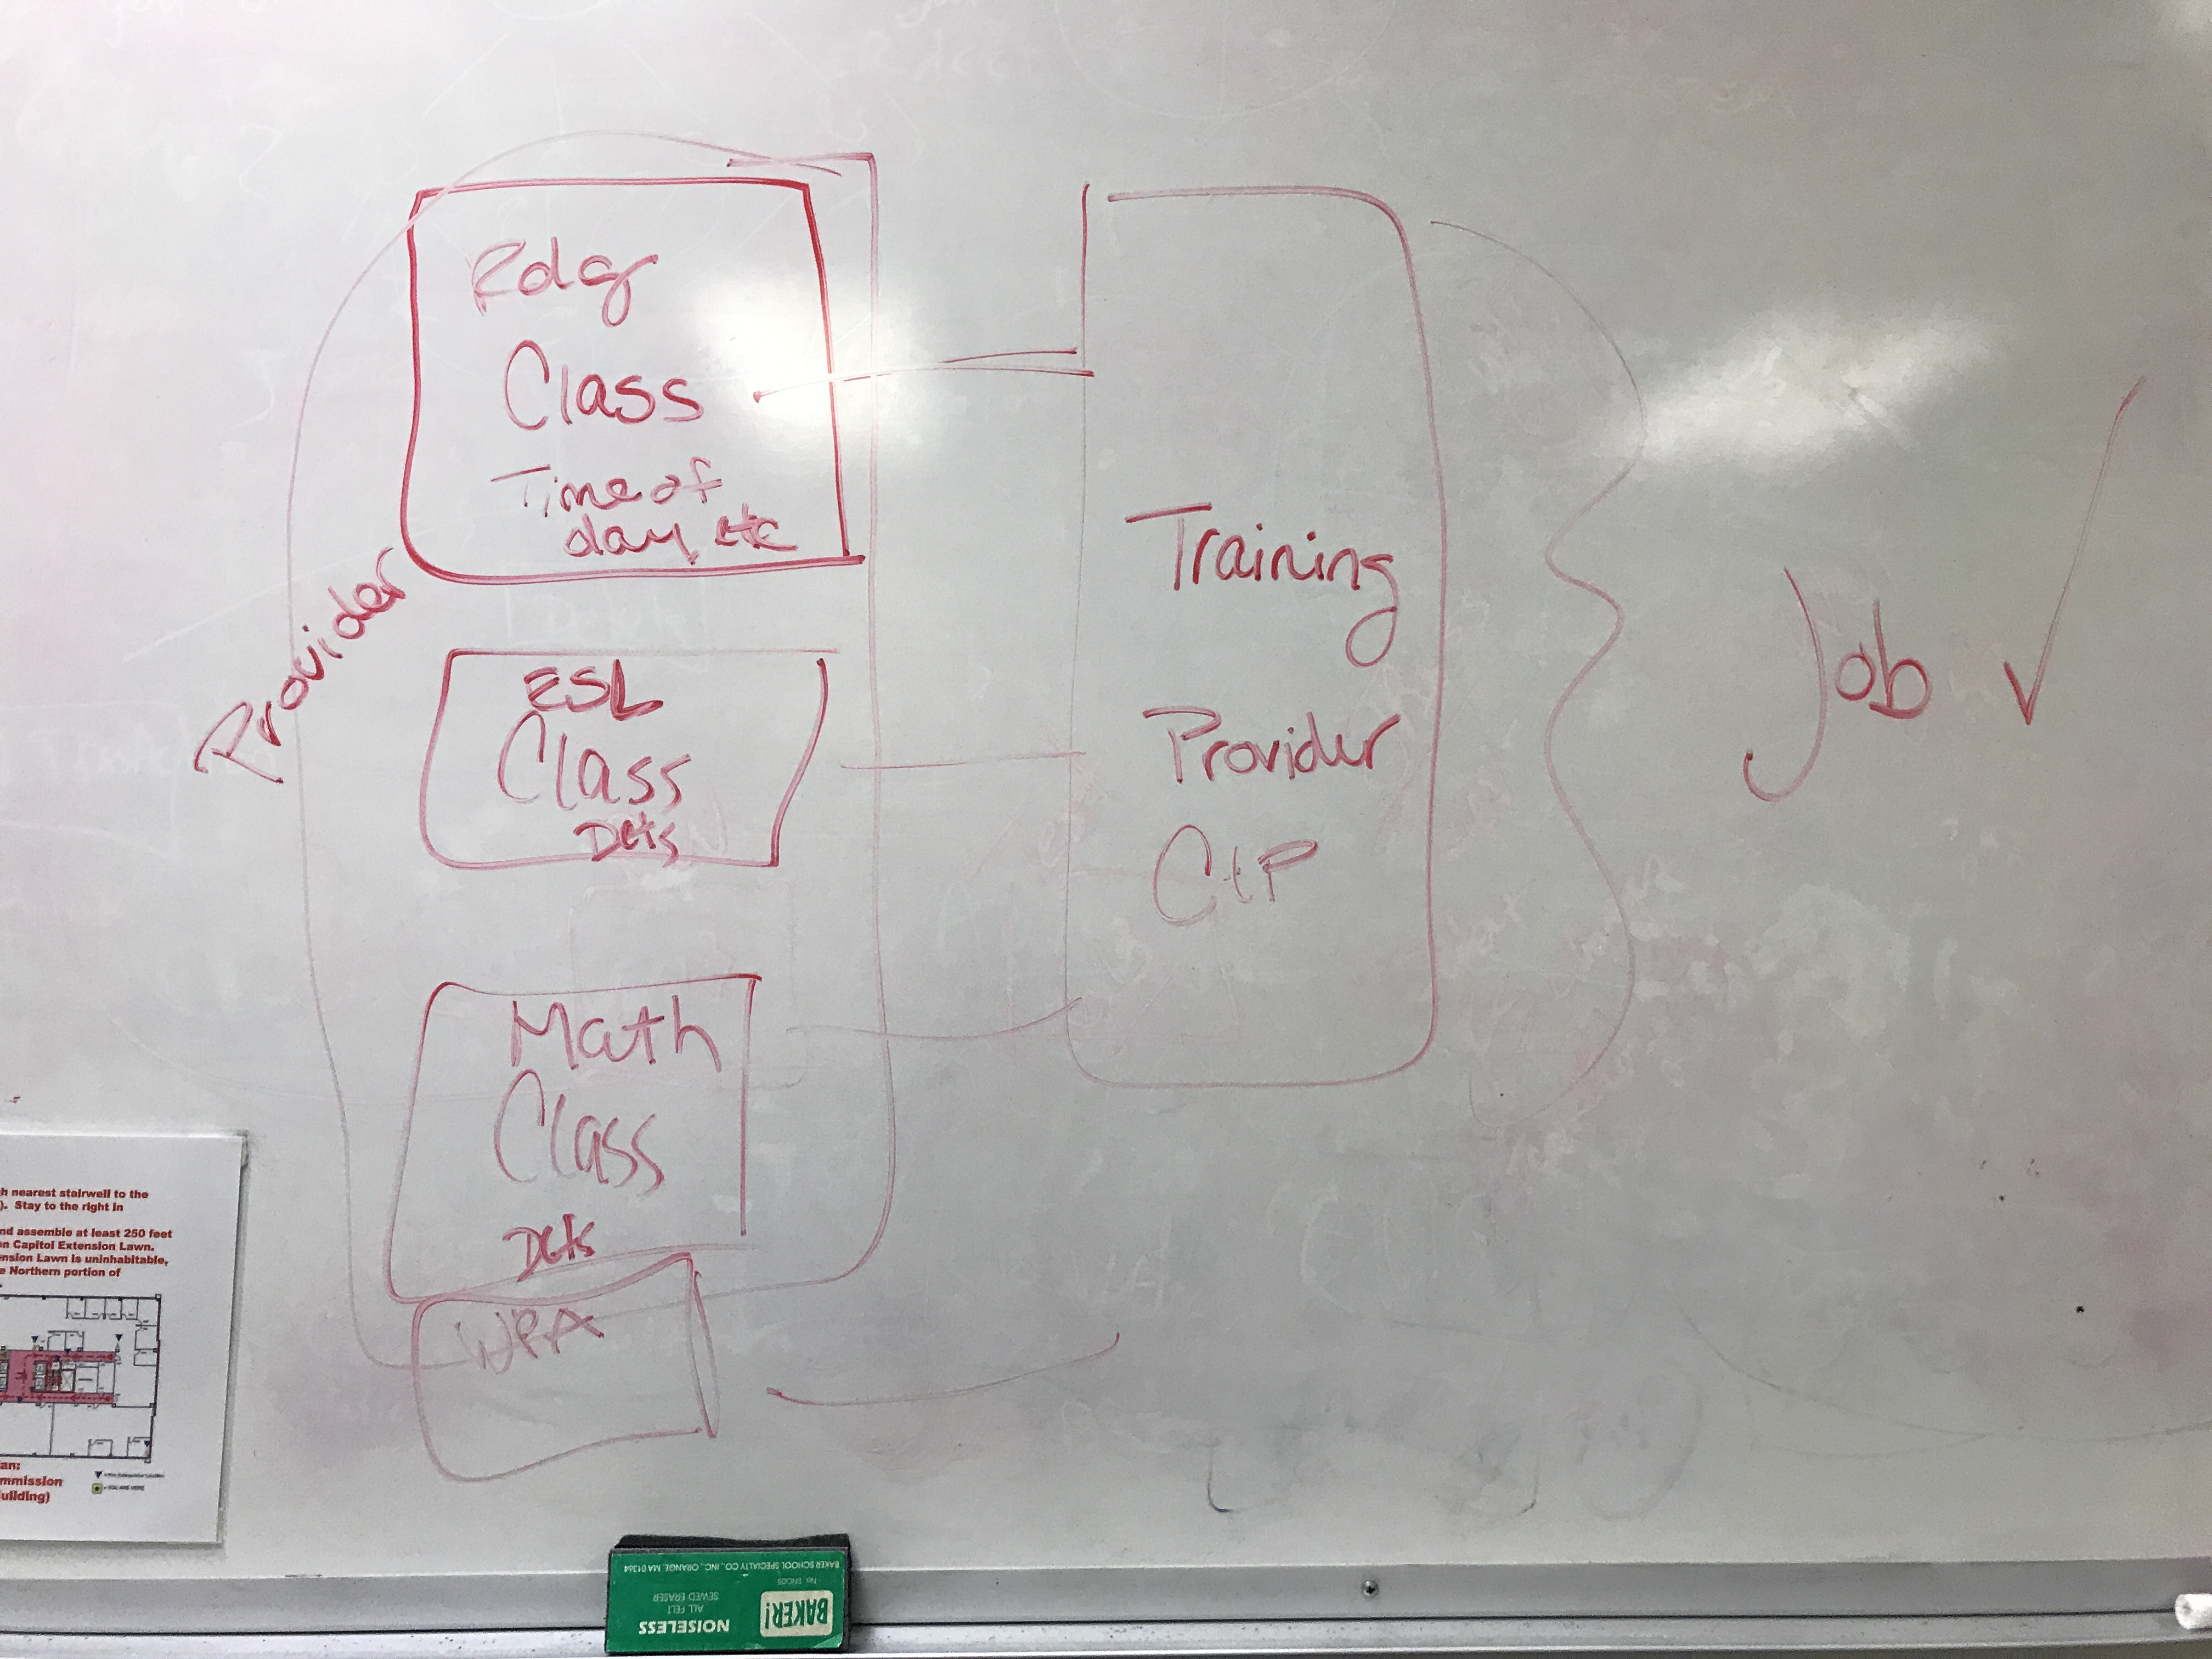 Rdg
Class
Time of
day, etc
Provider
ESL
Class
Dets
Math
Class
Dets
Training
Provider
Job ✓
h nearest stairwell to the
). Stay to the right in
nd assemble at least 250 feet
on Capitol Extension Lawn.
ension Lawn is uninhabitable,
e Northern portion of
an:
mmission
uilding)
BAKER!
NOISELESS
ALL FELT
SEWED ERASER
BAKER SCHOOL SPECIALTY CO., INC., ORANGE, MA 01364